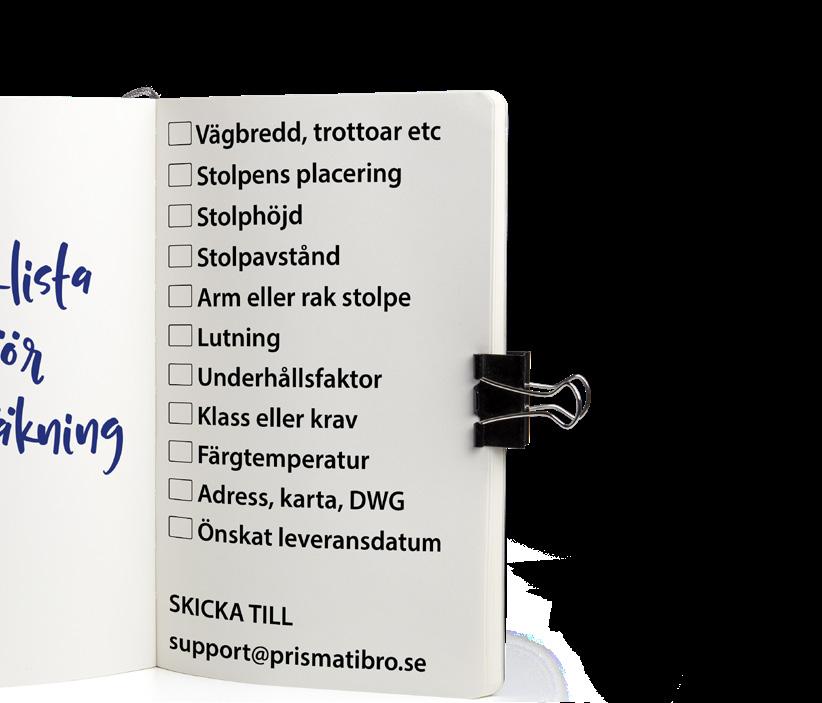 lista
för
Vägbredd, trottoar etc
Stolpens placering
Stolphöjd
Stolpavstånd
Arm eller rak stolpe
Lutning
Underhållsfaktor
Klass eller krav
Färgtemperatur
Adress, karta, DWG
Önskat leveransdatum
SKICKA TILL
support@prismatibro.se